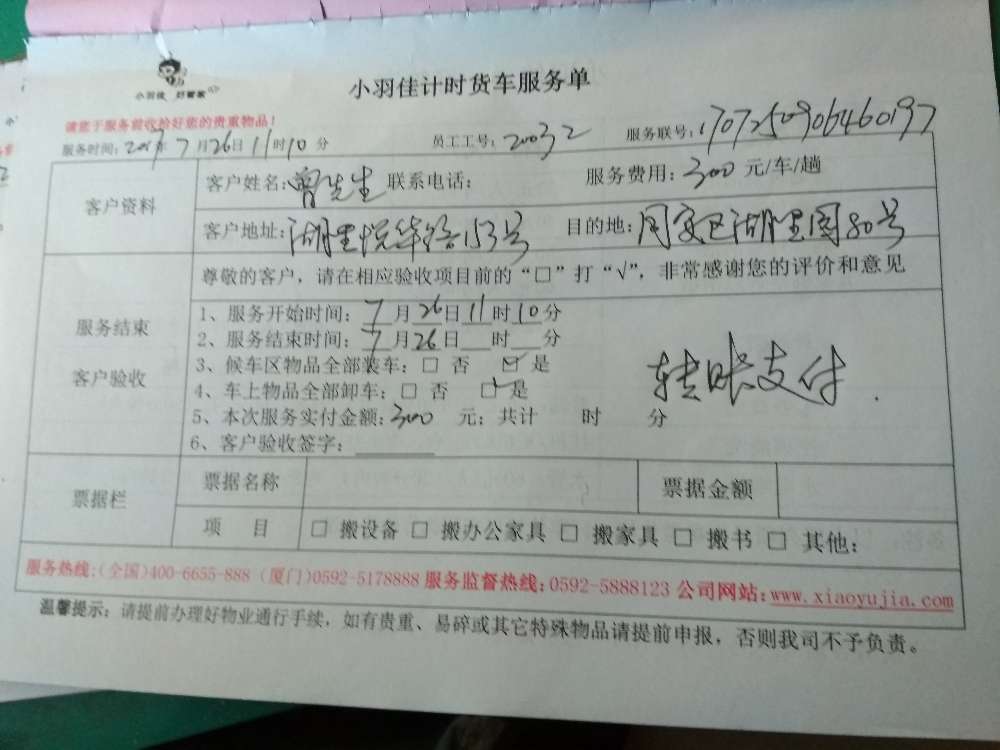 小羽佳计时货车服务单
小羽佳 好管家
请您于服务前收拾好您的贵重物品！
服务时间：2017年7月26日11时10分 员工工号：20032 服务联号：1707250906460197
客户资料
客户姓名：曾先生 联系电话： 服务费用：300元/车/趟
客户地址：湖里悦华路153号 目的地：同安区湖里园80号
尊敬的客户，请在相应验收项目前的“□”打“√”，非常感谢您的评价和意见
服务结束
客户验收
1、服务开始时间：7月26日11时10分
2、服务结束时间：7月26日 时 分
3、候车区物品全部装车：□ 否 ☑ 是
4、车上物品全部卸车：□ 否 ☑ 是
5、本次服务实付金额：300 元；共计 时 分
6、客户验收签字：
转账支付
票据栏
票据名称 票据金额
项 目 □ 搬设备 □ 搬办公家具 □ 搬家具 □ 搬书 □ 其他：
服务热线：(全国)400-6655-888 (厦门)0592-5178888 服务监督热线：0592-5888123 公司网站：www.xiaoyujia.com
温馨提示：请提前办理好物业通行手续，如有贵重、易碎或其它特殊物品请提前申报，否则我司不予负责。